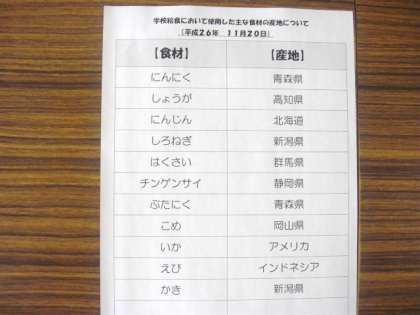 学校給食において使用した主な食材の産地について
（平成26年 11月20日）
【食材】 【産地】
にんにく 青森県
しょうが 高知県
にんじん 北海道
しろねぎ 新潟県
はくさい 群馬県
チンゲンサイ 静岡県
ぶたにく 青森県
こめ 岡山県
いか アメリカ
えび インドネシア
かき 新潟県